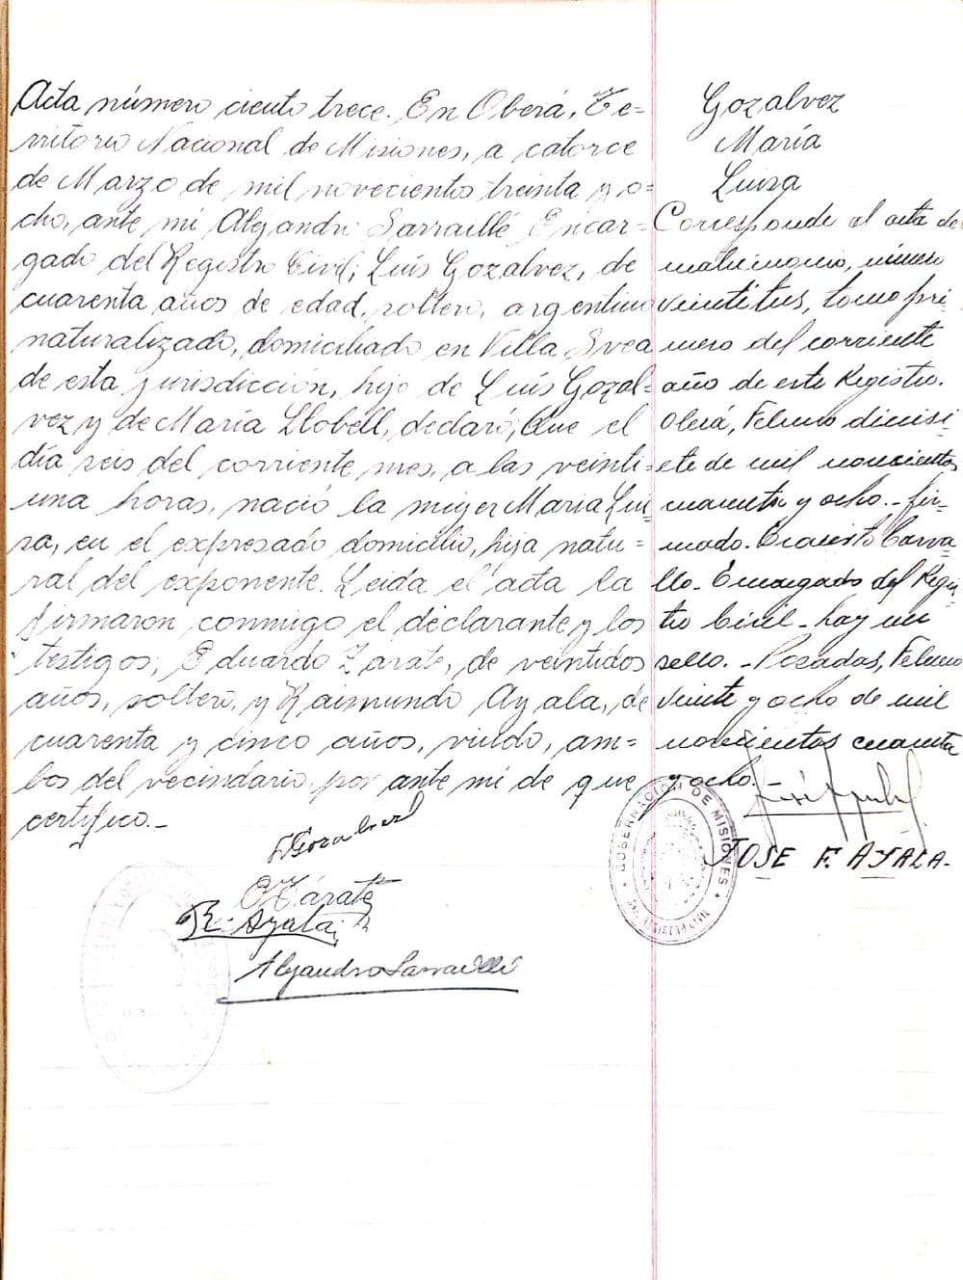 Acta número ciento trece. En Oberá, Te=
rritorio Nacional de Misiones, a catorce
de Marzo de mil novecientos treinta y o=
cho, ante mí Alejandro Sarraillé Encar=
gado del Registro Civil; Luís Gozalvez, de
cuarenta años de edad, soltero, argentino
naturalizado, domiciliado en Villa Svea
de esta jurisdicción, hijo de Luís Gozal=
vez y de María Llobell, declaró; Que el
día seis del corriente mes, a las veinti=
una horas, nació la mujer María Lui=
sa, en el expresado domicilio, hija natu=
ral del exponente. Leida el acta la
firmaron conmigo el declarante y los
testigos; Eduardo Zarate, de veintidos
años, soltero, y Raimundo Ayala, de
cuarenta y cinco años, viudo, am=
bos del vecindario, por ante mí de que
certifico._
Gozalvez
María
Luisa
Corresponde al acta de
matrimonio, número
veintitres, tomo pri
mero del corriente
año de este Registro.
Oberá, Febrero diecisi
ete de mil novecientos
cuarenta y ocho._ fir=
mado. Carva
llo. Encargado del Regis
tro Civil - hay un
sello. - Posadas, Febrero
veinte y ocho de mil
novecientos cuarenta
y ocho.
GOBERNACIÓN DE MISIONES
JOSE F. AYALA.
Zárate
R. Ayala
Alejandro Sarraillé